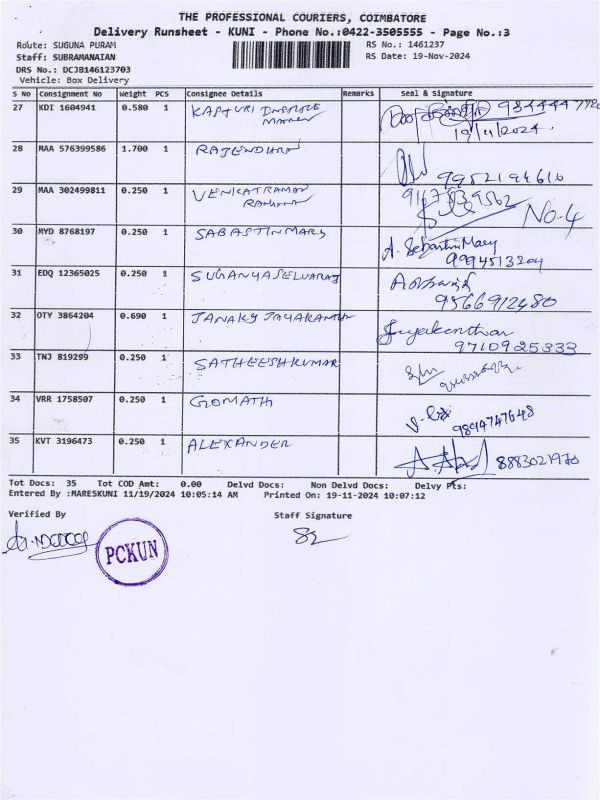 THE PROFESSIONAL COURIERS, COIMBATORE
Delivery Runsheet - KUNI - Phone No.:0422-3505555 - Page No.:3
Route: SUGUNA PURAM RS No.: 1461237
Staff: SUBRAMANAIAN RS Date: 19-Nov-2024
DRS No.: DCJB146123703
Vehicle: Box Delivery
S No Consignment No Weight PCS Consignee Details Remarks Seal & Signature
27 KDI 1604941 0.580 1 KASTURI
19/11/2024.
28 MAA 576399586 1.700 1 RAJENDHRAN
9952194610
29 MAA 302499811 0.250 1 VENKATRAMAN
No-4
30 MYD 8768197 0.250 1 SABASTINMARY A. SebastinMary
9994513304
31 EDQ 12365025 0.250 1 SUGANYASELVARAJ
9566912480
32 OTY 3864204 0.690 1 JANAKY JAYAKANTH Jayakanthan
9710925333
33 TNJ 819299 0.250 1 SATHEESHKUMAR
34 VRR 1758507 0.250 1 GOMATHI
9894747648
35 KVT 3196473 0.250 1 ALEXANDER 8883021970
Tot Docs: 35 Tot COD Amt: 0.00 Delvd Docs: Non Delvd Docs: Delvy Pts:
Entered By :MARESKUNI 11/19/2024 10:05:14 AM Printed On: 19-11-2024 10:07:12
Verified By Staff Signature
PCKUN